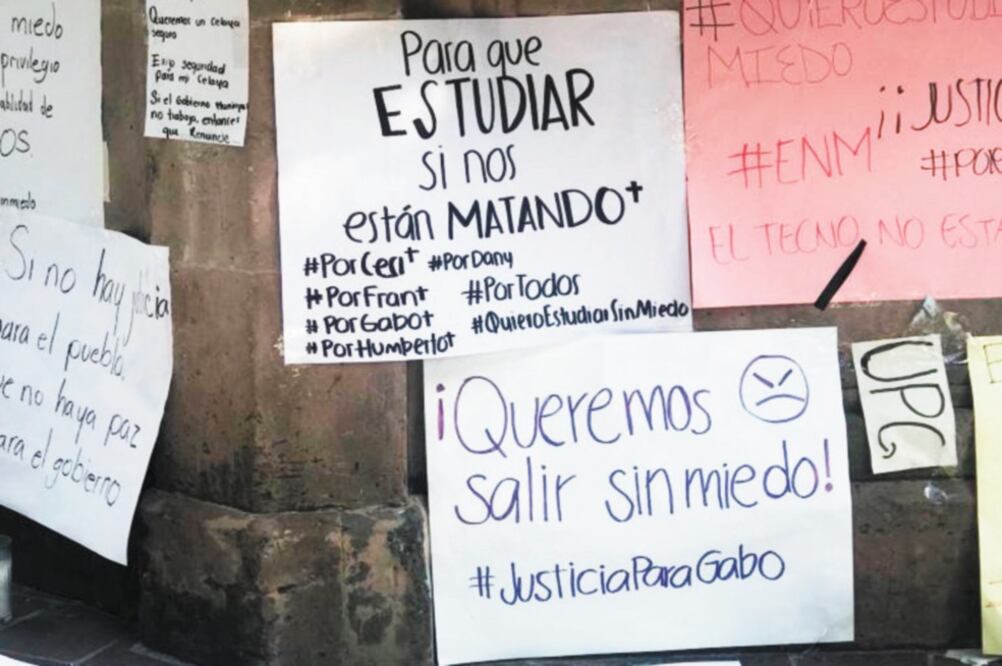 miedo
privilegio
de
OS.
Queremos un Celaya
seguro
Exijo seguridad
para mi Celaya
Si el Gobierno Municipal
no trabaja, entonces
que Renuncie
Para que
ESTUDIAR
si nos
están MATANDO†
#PorCeci† #PorDany
#PorFran† #PorTodos
#PorGabo† #QuieroEstudiarSinMiedo
#PorHumberto†
#QUIEROESTUDI
MIEDO
¡¡JUSTIC
#ENM
#POR
EL TECNO NO ESTA
Si no hay justicia
para el pueblo,
que no haya paz
para el gobierno
¡Queremos
salir sin miedo!
#JusticiaParaGabo
UPG